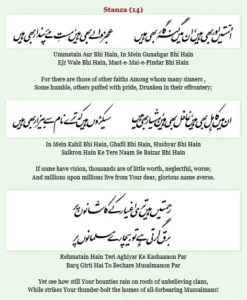 Stanza (14)
امتیں اور بھی ہیں ان میں گنہ گار بھی ہیں عجز والے بھی ہیں مست مۓ پندار بھی ہیں
Ummatain Aur Bhi Hain, In Mein Gunahgar Bhi Hain
Ejz Wale Bhi Hain, Mast-e-Mai-e-Pindar Bhi Hain
For there are those of other faiths Among whom many sinners ,
Some humble, others puffed with pride, Drunken in their effrontery;
ان میں کاہل بھی ہیں غافل بھی ہیں ہشیار بھی ہیں سیکڑوں ہیں کہ ترے نام سے بیزار بھی ہیں
In Mein Kahil Bhi Hain, Ghafil Bhi Hain, Hushyar Bhi Hain
Saikron Hain Ke Tere Naam Se Baizar Bhi Hain
If some have vision, thousands are of little worth, neglectful, worse;
And millions upon millions live from Your dear, glorious name averse.
رحمتیں ہیں تری اغیار کے کاشانوں پر
برق گرتی ہے تو بیچارے مسلمانوں پر
Rehmatain Hain Teri Aghiyar Ke Kashaanon Par
Barq Girti Hai To Bechare Musalmanon Par
Yet see how still Your bounties rain on roofs of unbelieving clans,
While strikes Your thunder-bolt the homes of all-forbearing Mussalmans!